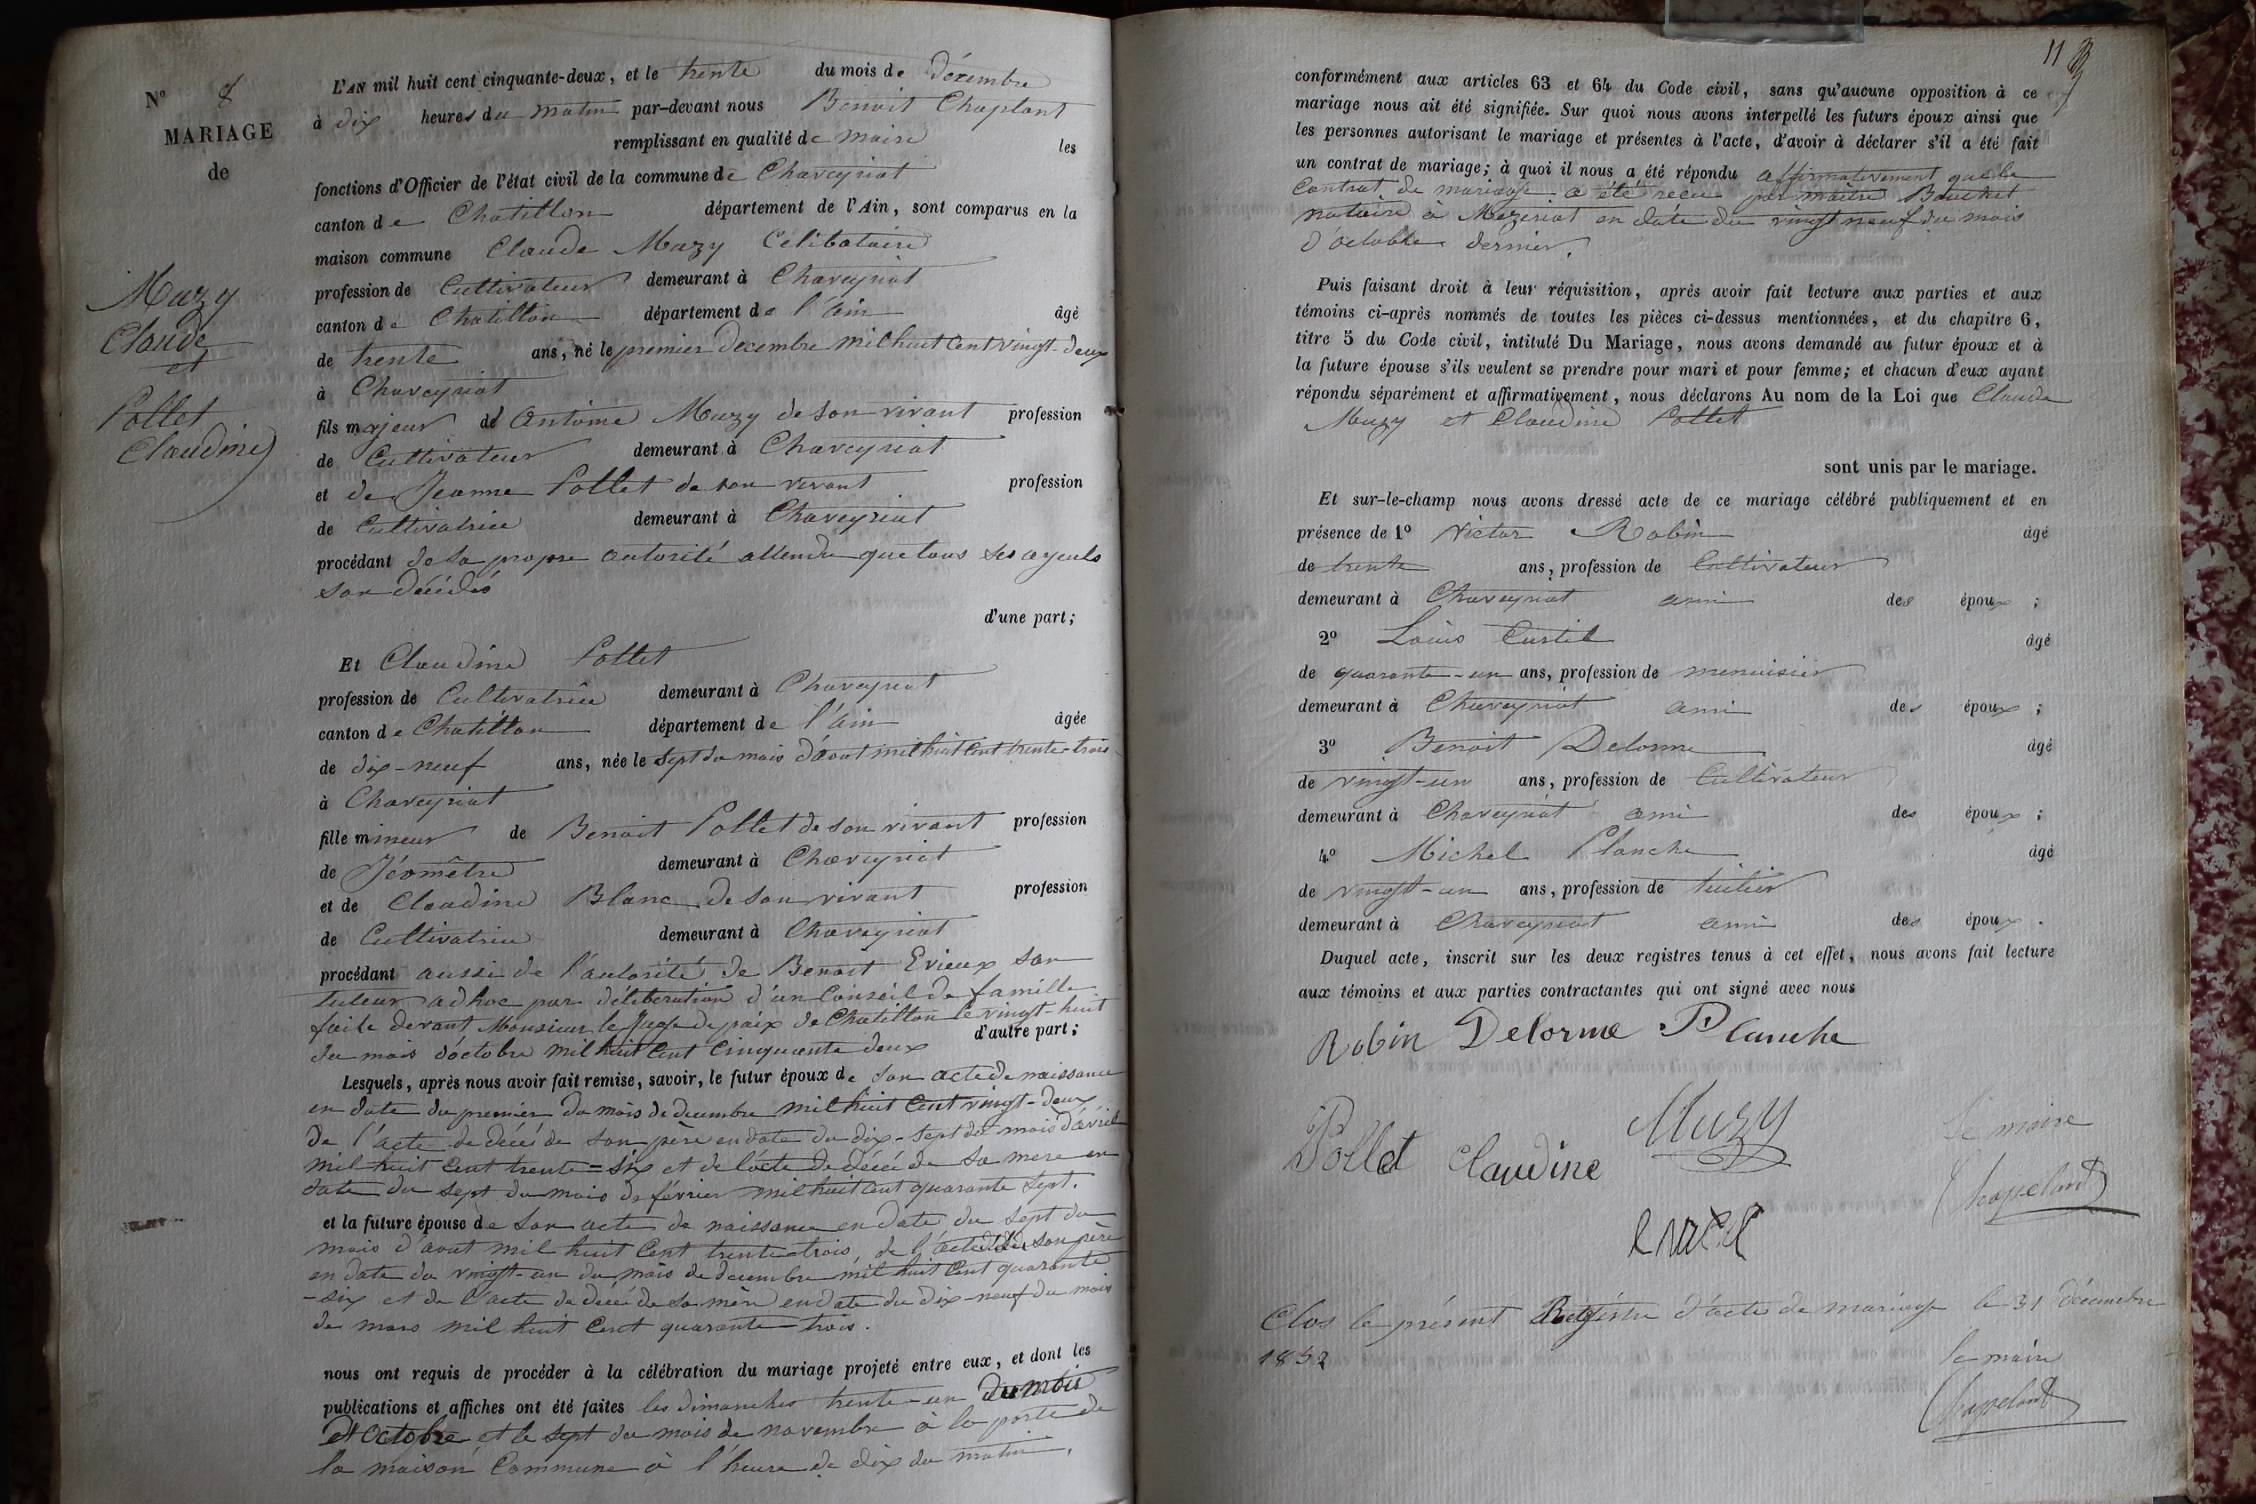 N° 8
MARIAGE
de
Muzy
Claude
et
Pollet
Claudine
L'AN mil huit cent cinquante-deux, et le trente du mois de décembre
à dix heures du matin par-devant nous Benoit Chaplant
remplissant en qualité de maire les
fonctions d'Officier de l'état civil de la commune de Chaveyriat
canton de Chatillon département de l'Ain, sont comparus en la
maison commune Claude Muzy Célibataire
profession de Cultivateur demeurant à Chaveyriat
canton de Chatillon département de l'ain âgé
de trente ans, né le premier decembre mil huit cent vingt-deux
à Chaveyriat
fils majeur de Antoine Muzy de son vivant profession
de Cultivateur demeurant à Chaveyriat
et de Jeanne Pollet de son vivant profession
de Cultivatrice demeurant à Chaveyriat
procédant de sa propre autorité attendu que tous ses ayeuls
son décédés
d'une part;
Et Claudine Pollet
profession de Cultivatrice demeurant à Chaveyriat
canton de Chatillon département de l'ain âgée
de dix-neuf ans, née le sept du mois d'aout mil huit cent trente-trois
à Chaveyriat
fille mineur de Benoit Pollet de son vivant profession
de Jéomêtre demeurant à Chaveyriat
et de Claudine Blanc de son vivant profession
de Cultivatrice demeurant à Chaveyriat
procédant aussi de l'autorité de Benoit Evieux son
tuteur adhoc par déliberation d'un Conseil de famille
faite devant Monsieur le Juge de paix de Chatillon le vingt-huit
du mois d'octobre mil huit cent cinquante deux d'autre part;
Lesquels, après nous avoir fait remise, savoir, le futur époux de son acte de naissance
en date du premier du mois de decembre mil huit cent vingt-deux
de l'acte de décé de son père en date du dix-sept du mois d'avril
mil huit cent trente=six et de l'acte de décé de sa mere en
date du sept du mois de février mil huit cent quarante sept.
et la future épouse de son acte de naissance en date du sept du
mois d'aout mil huit cent trente-trois, de l'acte de décé de son père
en date du vingt-un du mois de decembre mil huit cent quarante
-six et de l'acte de décé de sa mère en date du dix-neuf du mois
de mars mil huit cent quarante-trois.
nous ont requis de procéder à la célébration du mariage projeté entre eux, et dont les
publications et affiches ont été faites les dimanches trente-un du mois
d'Octobre et le sept du mois de novembre à la porte de
la maison Commune à l'heure de dix du matin.
11
conformément aux articles 63 et 64 du Code civil, sans qu'aucune opposition à ce
mariage nous ait été signifiée. Sur quoi nous avons interpellé les futurs époux ainsi que
les personnes autorisant le mariage et présentes à l'acte, d'avoir à déclarer s'il a été fait
un contrat de mariage; à quoi il nous a été répondu affirmativement que le
Contrat de mariage a été recu par maître Bouchet
notaire à Mezeriat en date du vingt neuf du mois
d'octobre dernier.
Puis faisant droit à leur réquisition, après avoir fait lecture aux parties et aux
témoins ci-après nommés de toutes les pièces ci-dessus mentionnées, et du chapitre 6,
titre 5 du Code civil, intitulé Du Mariage, nous avons demandé au futur époux et à
la future épouse s'ils veulent se prendre pour mari et pour femme; et chacun d'eux ayant
répondu séparément et affirmativement, nous déclarons Au nom de la Loi que Claude
Muzy et Claudine Pollet
sont unis par le mariage.
Et sur-le-champ nous avons dressé acte de ce mariage célébré publiquement et en
présence de 1° Victor Robin âgé
de trente ans, profession de Cultivateur
demeurant à Chaveyriat ami des époux ;
2° Louis Curtil âgé
de quarante-un ans, profession de menuisier
demeurant à Chaveyriat ami des époux ;
3° Benoit Delorme âgé
de vingt-un ans, profession de Cultivateur
demeurant à Chaveyriat ami des époux ;
4° Michel Planche âgé
de vingt-un ans, profession de tuilier
demeurant à Chaveyriat ami des époux .
Duquel acte, inscrit sur les deux registres tenus à cet effet, nous avons fait lecture
aux témoins et aux parties contractantes qui ont signé avec nous
Robin Delorme Planche
Pollet Claudine Muzy
Le maire
Chapelant
Clos le présent Régistre d'acte de mariage le 31 décembre
1852
le maire
Chapelant